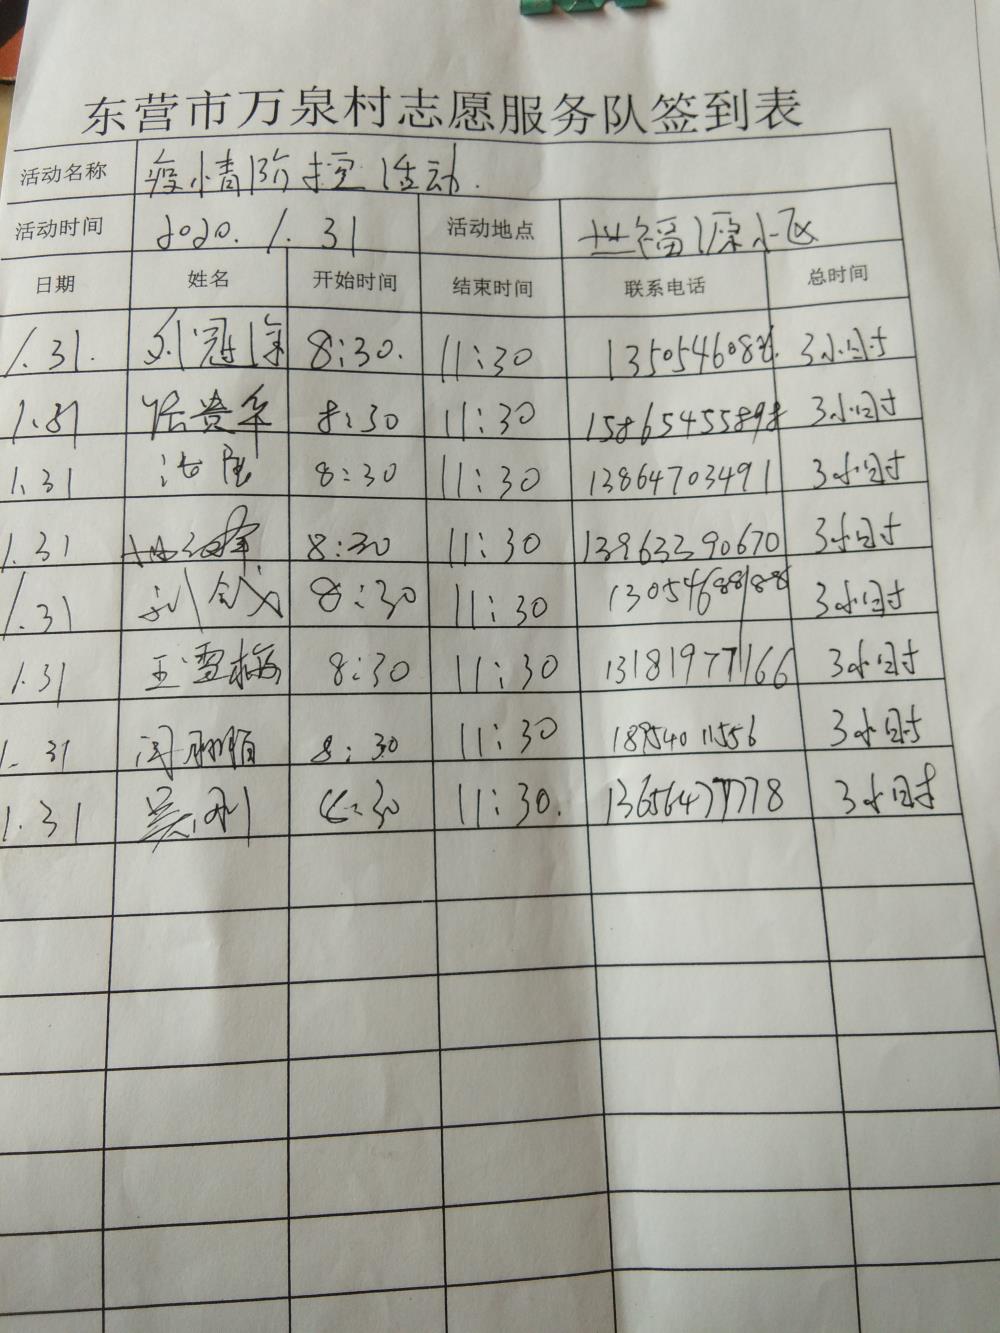 东营市万泉村志愿服务队签到表
活动名称 疫情防控活动.
活动时间 2020.1.31 活动地点 世福源小区
日期 姓名 开始时间 结束时间 联系电话 总时间
1.31. 8:30. 11:30 3小时
1.31 贵华 8:30 11:30 15865455898 3小时
1.31 8:30 11:30 13864703491 3小时
1.31 8:30 11:30 13963390670 3小时
1.31 8:30 11:30 3小时
1.31 王雪梅 8:30 11:30 13181977166 3小时
1.31 8:30 11:30 18954011556 3小时
1.31 11:30. 13656477778 3小时